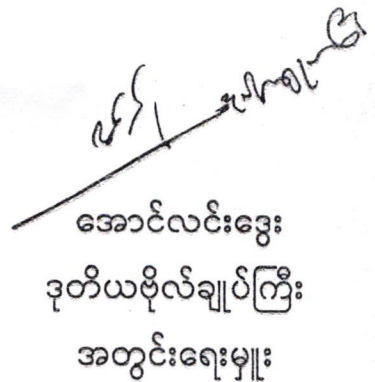 အောင်လင်းဒွေး
ဒုတိယဗိုလ်ချုပ်ကြီး
အတွင်းရေးမှူး